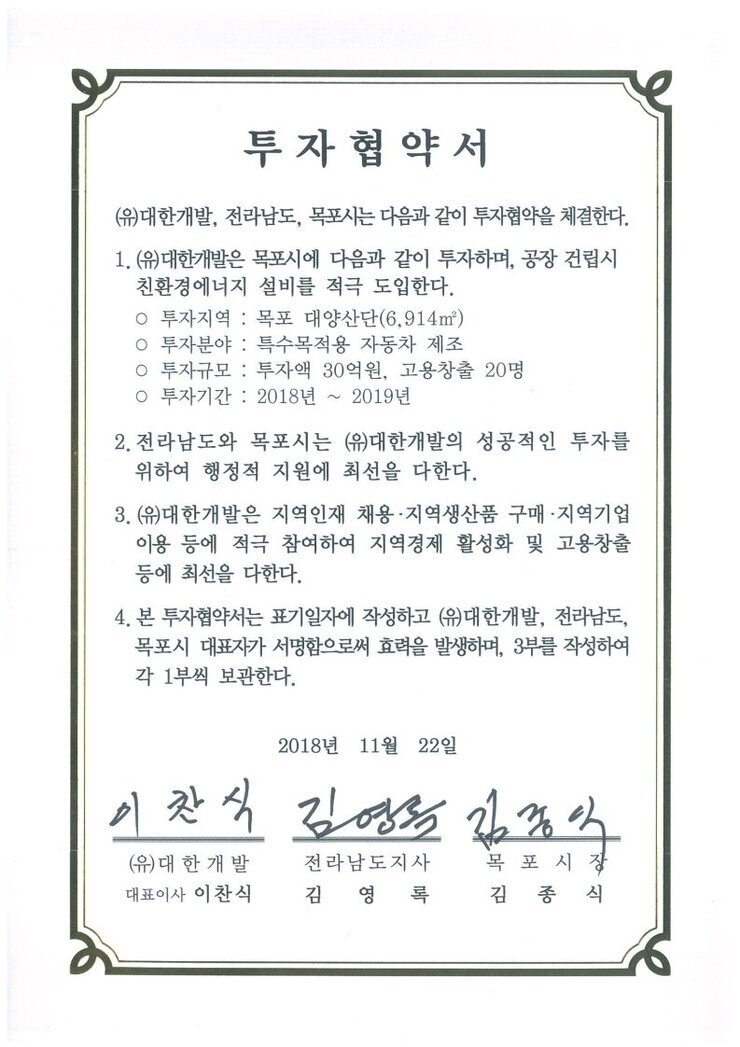 투자협약서
(유)대한개발, 전라남도, 목포시는 다음과 같이 투자협약을 체결한다.
1. (유)대한개발은 목포시에 다음과 같이 투자하며, 공장 건립시
친환경에너지 설비를 적극 도입한다.
○ 투자지역 : 목포 대양산단(6,914㎡)
○ 투자분야 : 특수목적용 자동차 제조
○ 투자규모 : 투자액 30억원, 고용창출 20명
○ 투자기간 : 2018년 ~ 2019년
2. 전라남도와 목포시는 (유)대한개발의 성공적인 투자를
위하여 행정적 지원에 최선을 다한다.
3. (유)대한개발은 지역인재 채용·지역생산품 구매·지역기업
이용 등에 적극 참여하여 지역경제 활성화 및 고용창출
등에 최선을 다한다.
4. 본 투자협약서는 표기일자에 작성하고 (유)대한개발, 전라남도,
목포시 대표자가 서명함으로써 효력을 발생하며, 3부를 작성하여
각 1부씩 보관한다.
2018년 11월 22일
이찬식 김영록 김종식
(유)대한개발 전라남도지사 목포시장
대표이사 이찬식 김영록 김종식